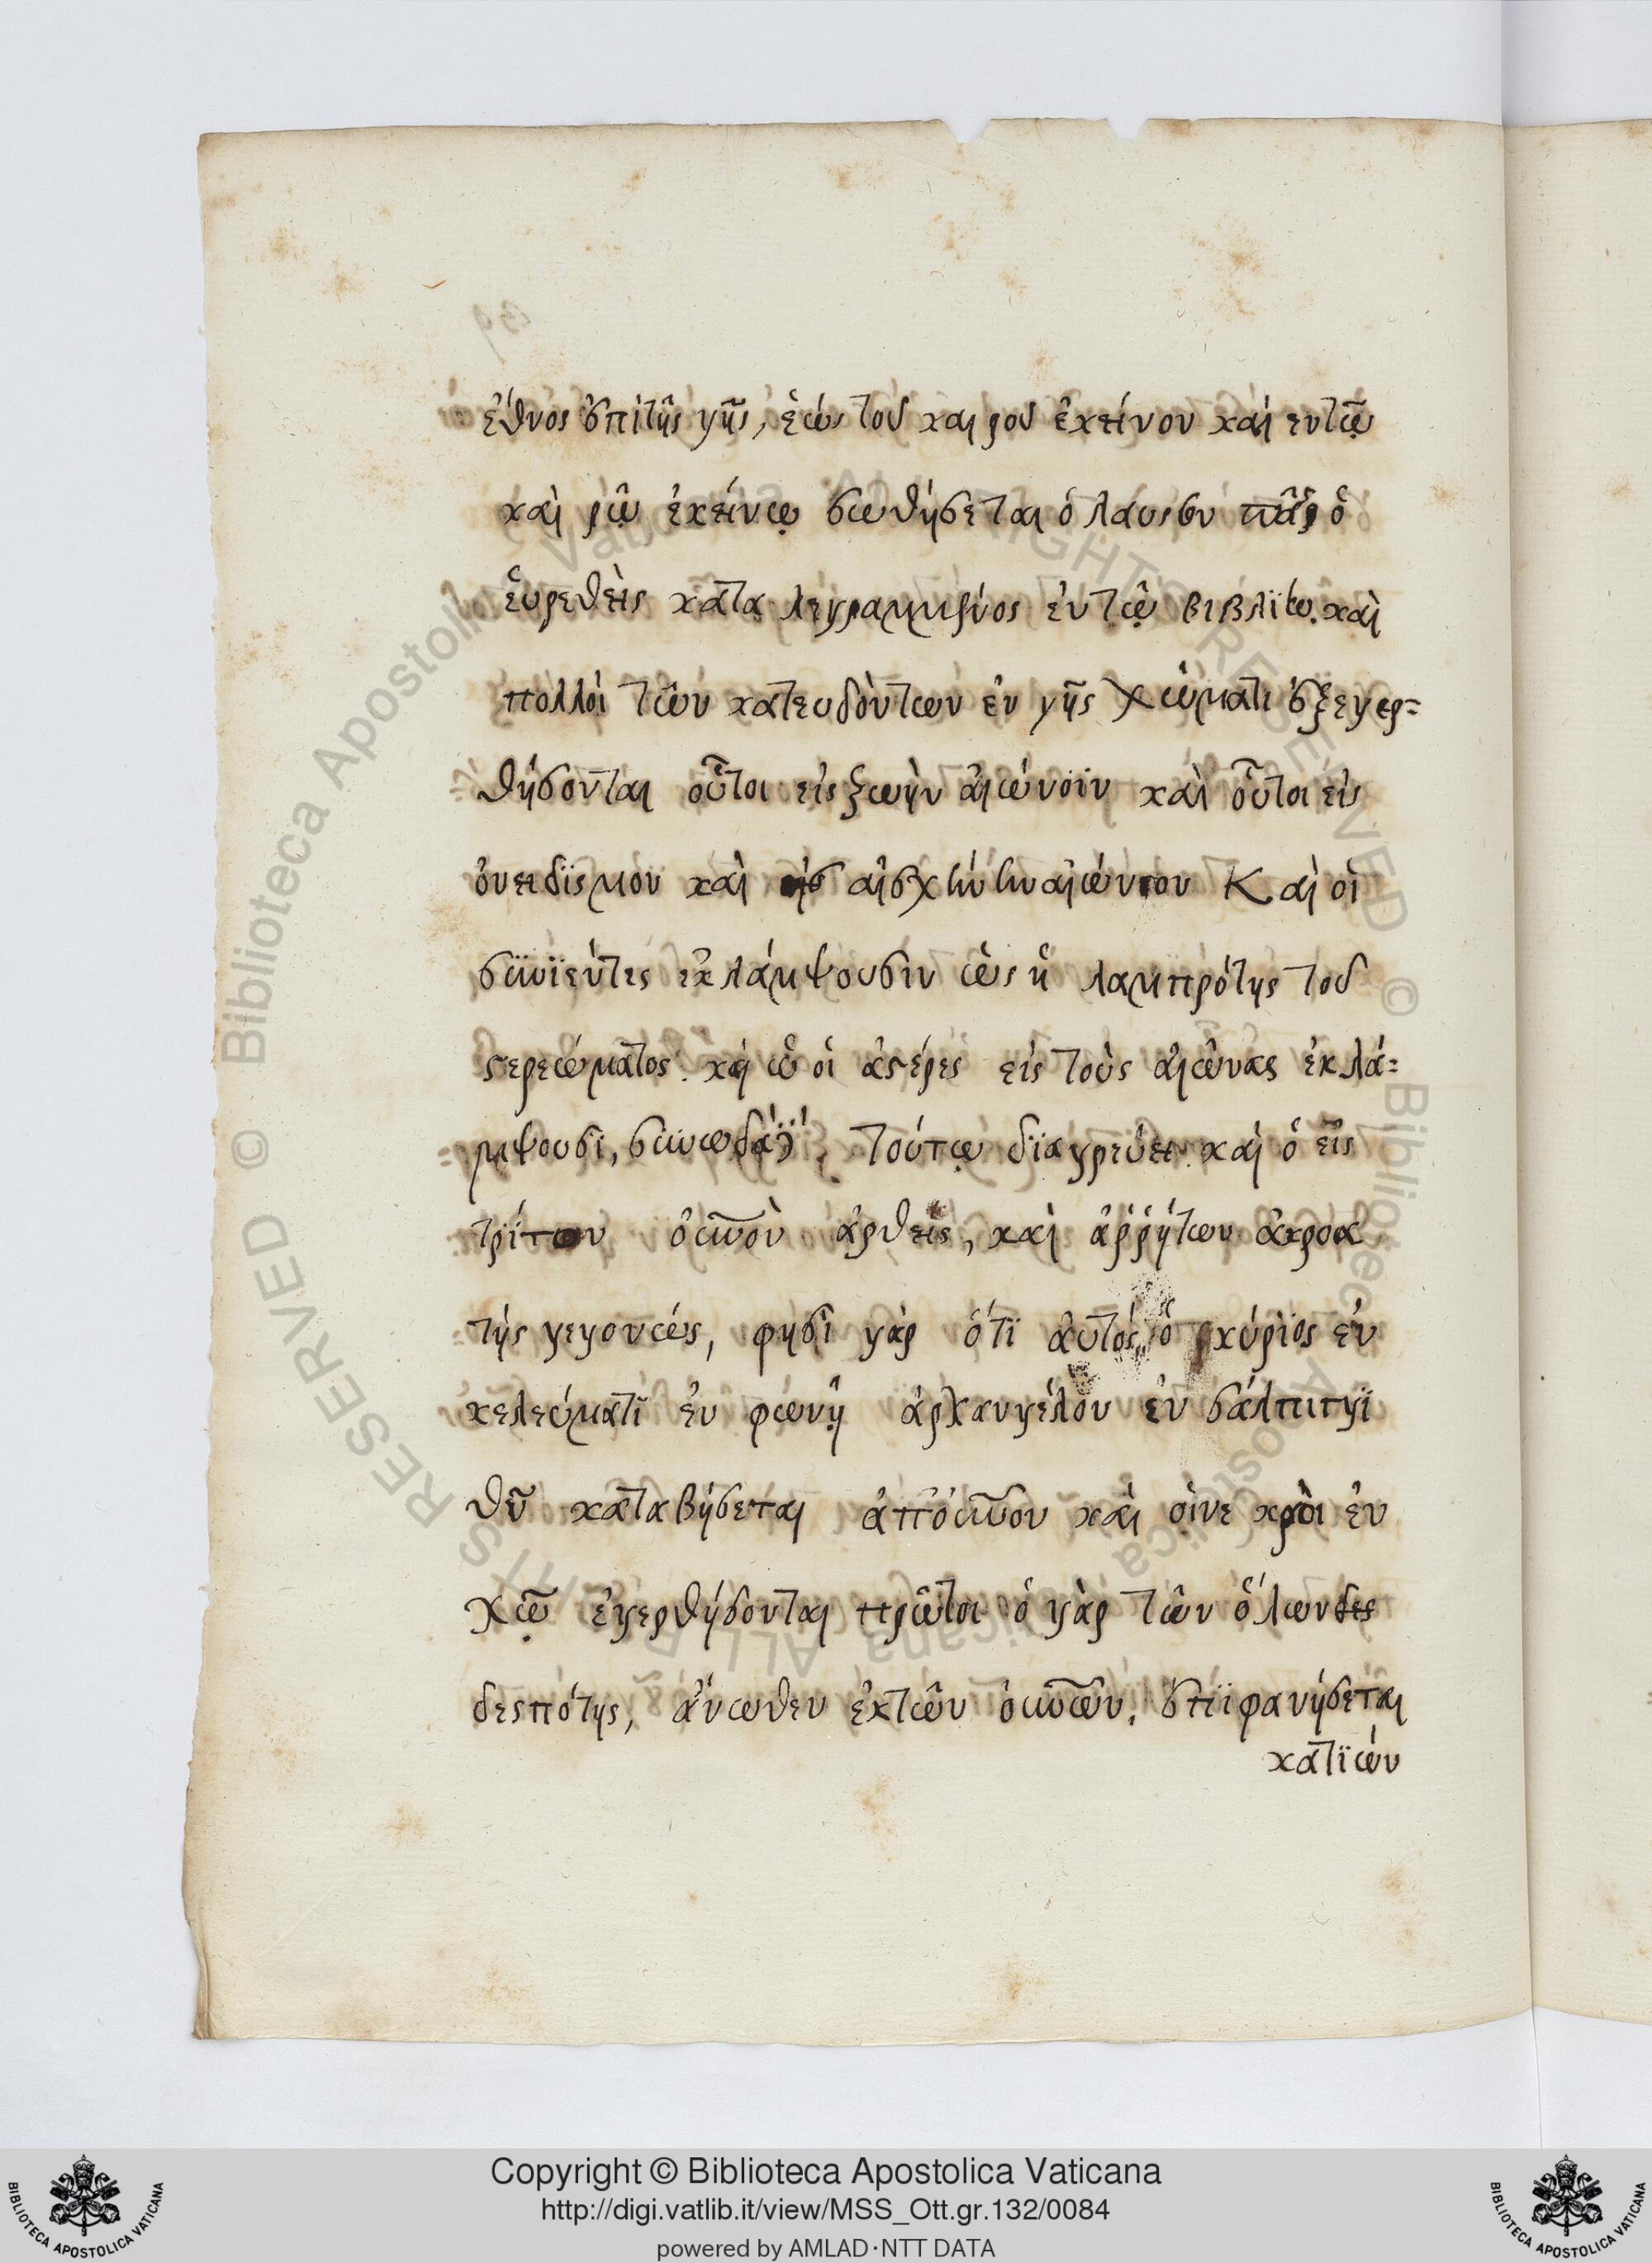 ἔθνος ἐπὶ τῆς γῆς, ἑώς τοῦ καιροῦ ἐκείνου καὶ ἐν τῶ
καὶ ρῶ ἐκείνω σωθήσεται ὁ λαὸς σου πᾶς ὁ
εὑρεθεὶς κατα λεγραμμένος ἐν τῶ βιβλίω, καὶ
πολλοὶ τῶν κατευδόντων ἐν γῆς χώματι ἐξεγερ=
θήσονται οὗτοι εἰς ζωὴν αἰώνοϊν καὶ οὗτοι εἰς
ὀνειδϊσμὸν καὶ εἰς αἰσχύνην αἰώνιον Καὶ οἱ
συνϊέντες ἐκλάμψουσιν ὡς ἡ λαμπρότης τοῦ
στερεώματος. καὶ ὡ οἱ ἀστέρες εἰς τοὺς αἰῶνας ἐκλά=
μψουσι, συνωδὰ τούτω διαγρεύει καὶ ὁ εἰς
τρίτον οὐνὸν ἀρθεὶς, καὶ ἀῤῥήτων ἀκροα
τής γεγονώς, φησὶ γάρ ὅτϊ αὐτός ὁ κύριος ἐν
κελεύματϊ ἐν φωνῆ ἀρχανγέλου ἐν σάλπιγγϊ
θῦ καταβήσεται ἀπ' οὐνου καὶ οἱ νε κροι ἐν
χῶ ἐγερθήσονται πρῶτοι ὁ γὰρ τῶν ὅλων δες
δεσπότης, ἄνωθεν ἐκ τῶν οὐνῶν, ἐπϊφανήσεται
κατϊών
Copyright © Biblioteca Apostolica Vaticana
http://digi.vatlib.it/view/MSS_Ott.gr.132/0084
powered by AMLAD·NTT DATA